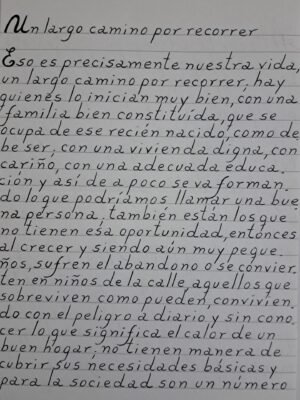 Un largo camino por recorrer
Eso es precisamente nuestra vida,
un largo camino por recorrer; hay
quienes lo inician muy bien, con una
familia bien constituída, que se
ocupa de ese recién nacido, como de
be ser; con una vivienda digna, con
cariño, con una adecuada educa.
ción y así de a poco se va forman.
do lo que podríamos llamar una bue
na persona, también están los que
no tienen esa oportunidad, entonces
al crecer y siendo aún muy peque.
ños, sufren el abandono o se convier.
ten en niños de la calle, aquellos que
sobreviven como pueden, convivien.
do con el peligro a diario y sin cono.
cer lo que significa el calor de un
buen hogar; no tienen manera de
cubrir sus necesidades básicas y
para la sociedad son un número